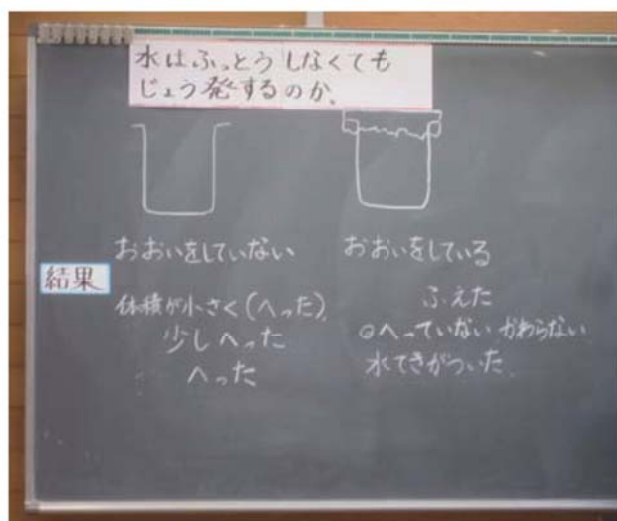 水はふっとうしなくても
じょう発するのか。
おおいをしていない
おおいをしている
結果
体積が小さく(へった)
少しへった
へった
ふえた
◎へっていない かわらない
水てきがついた